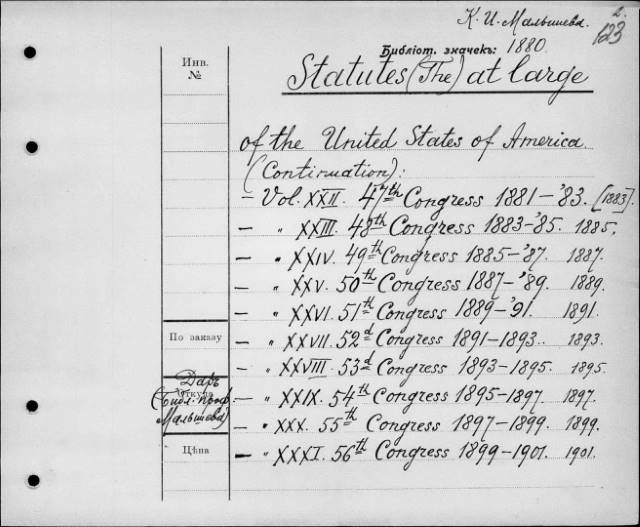 К. И. Малышева.
2.
123
Библіот. значекъ: 1880.
Инв.
№
Statutes (The) at large
of the United States of America
(Continuation):
– Vol. XXII. 47th Congress 1881–'83. [1883].
– " XXIII. 48th Congress 1883–'85. 1885.
– " XXIV. 49th Congress 1885–'87. 1887.
– " XXV. 50th Congress 1887–'89. 1889.
– " XXVI. 51th Congress 1889–'91. 1891.
По заказу
– " XXVII. 52d Congress 1891–1893. 1893.
– " XXVIII. 53d Congress 1893–1895. 1895.
Даръ
Откуда
(Библ. проф.
Малышева)
– " XXIX. 54th Congress 1895–1897. 1897.
– " XXX. 55th Congress 1897–1899. 1899.
Цѣна
– " XXXI. 56th Congress 1899–1901. 1901.